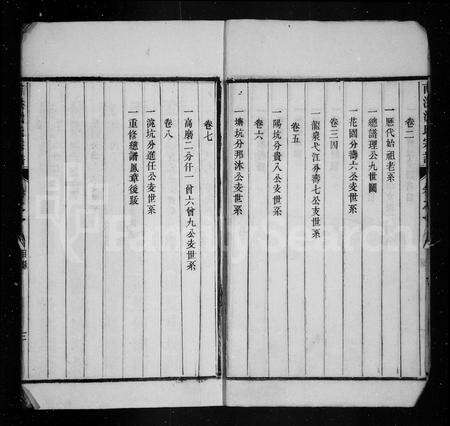 卷二
一歷代始祖老系
一總譜理公九世圖
一花園分壽六公支世系
卷三四
一龍泉弋江分壽七公支世系
卷五
一陽坑分貴八公支世系
卷六
一塘坑分邦沐公支世系
卷七
一高磨二分仟一曾六曾九公支世系
卷八
一流坑分進任公支世系
一重修總譜鳳章後跋
三